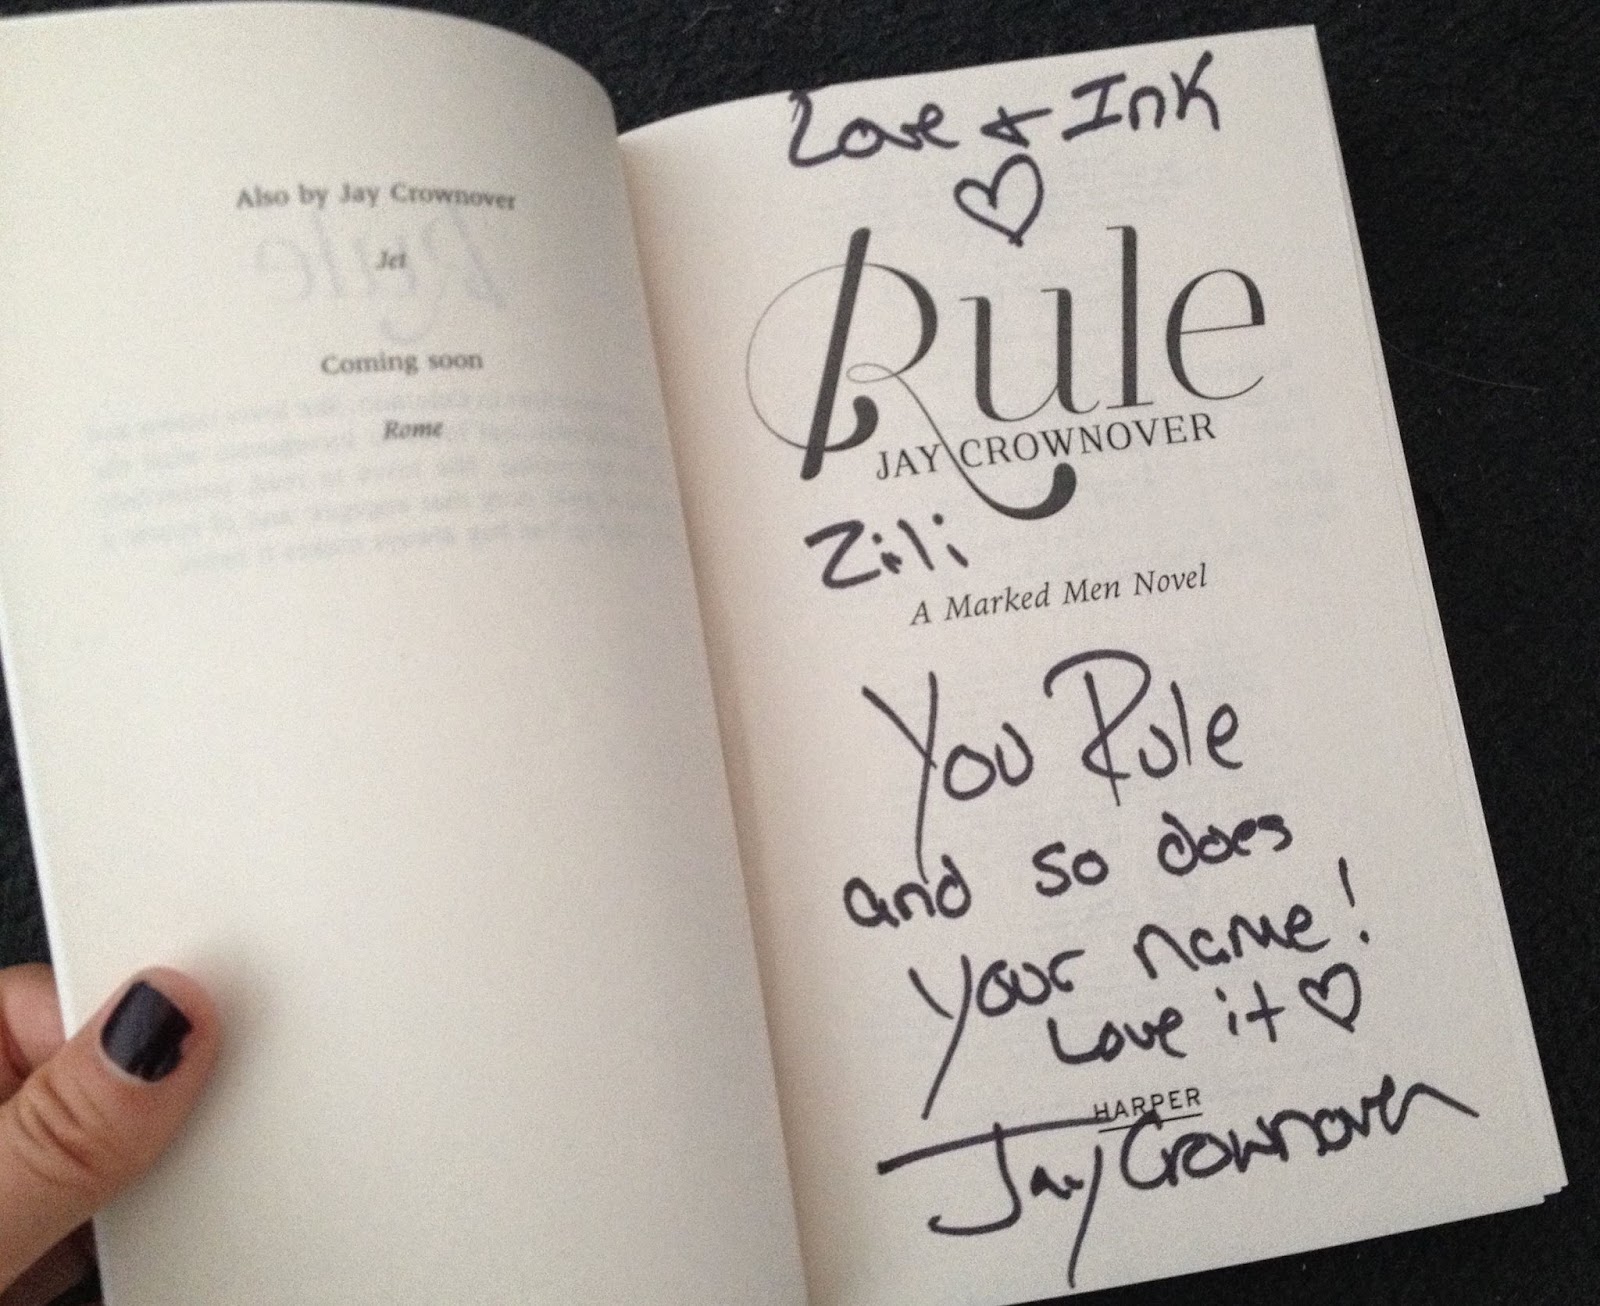 Also by Jay Crownover
Jet
Coming soon
Rome
Love & Ink
Rule
JAY CROWNOVER
Zili
A Marked Men Novel
You Rule
and so does
your name!
Love it
HARPER
Jay Crownover